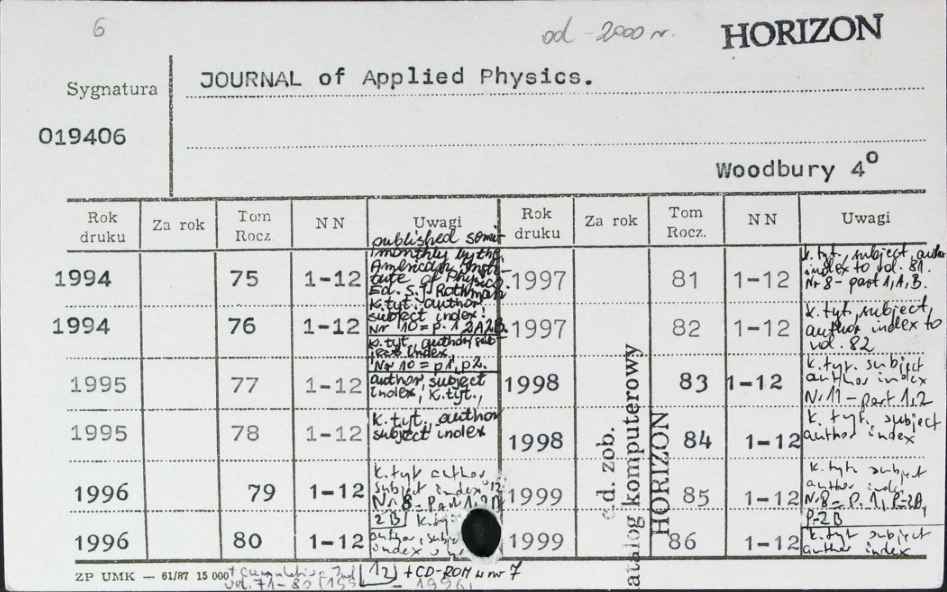 6
od - 2000 r.
HORIZON
Sygnatura
019406
JOURNAL of Applied Physics.
Woodbury 4°
Rok druku Za rok Tom Rocz. NN Uwagi Rok druku Za rok Tom Rocz. NN Uwagi
published semi
monthly by the
American Insti
tute of Physics.
Ed. S.J. Rothman
1994 75 1-12 k.tyt. author
subject index.
Nr 10 = p. 1 2A 2B.
1994 76 1-12 k.tyt., author, sub
ject index,
Nr 10 = p1, p2.
1995 77 1-12 author, subject
index, k.tyt.,
1995 78 1-12 k.tyt., author
subject index
1996 79 1-12 k.tyt. author
subject index
Nr 8 - Part 1,
2B
1996 80 1-12 author,
index
1997 81 1-12 k.tyt., subject, author
index to vol. 81.
Nr 8 - part 1,
1997 82 1-12 k.tyt., subject,
author index to
vol. 82
1998 83 1-12 k.tyt. subject
author index
Nr 11 - part 1,2
1998 84 1-12 k. tyt. subject
author index
1999 85 1-12 k.tyt. subject
author index
Nr 8 - P. 1, P-2A,
P-2B
1999 86 1-12 k.tyt. subject
author index
c.d. zob.
katalog komputerowy
HORIZON
ZP UMK — 61/87 15 000 + Cumulative
vol. 71-80
12 + CD-ROM w nr 7